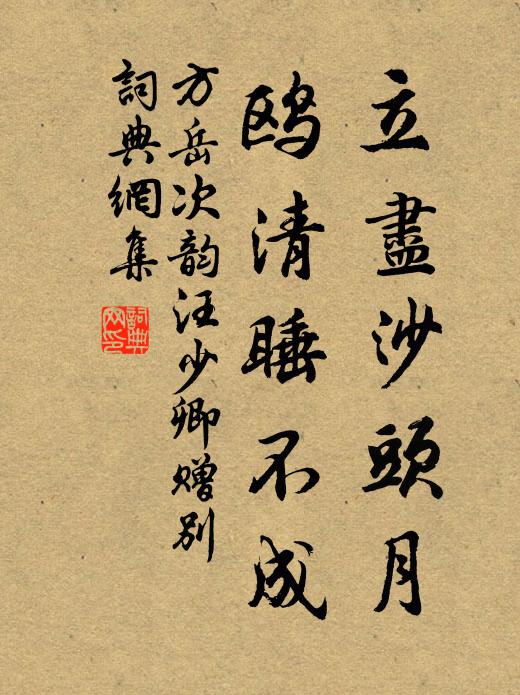 立盡沙頭月
鸥清睡不成
方岳次韵汪少卿赠别
詞典網集
詞典
网印